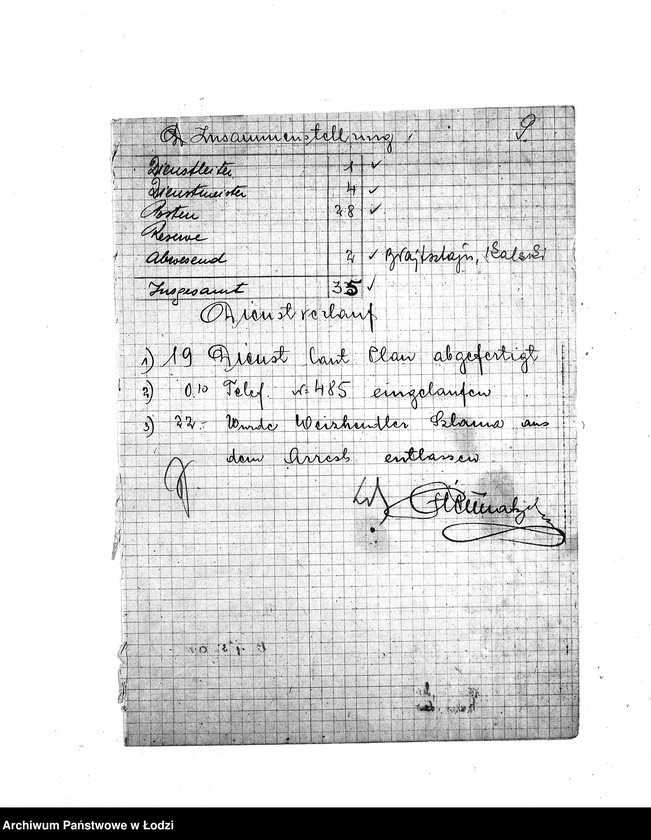 Zusammenstellung 9
Dienstleiter 1 ✓
Dienstmeister 4 ✓
Posten 28 ✓
Reserve
Abwesend 2 ✓ Brajtsztajn,
Insgesamt 35 ✓
Dienstverlauf
1) 19 Dienst laut Plan abgefertigt
2) 0.10 Telef. № 485 eingelaufen
3) 22.- Wurde Weizhendler Szlama aus
dem Arrest entlassen
Archiwum Państwowe w Łodzi